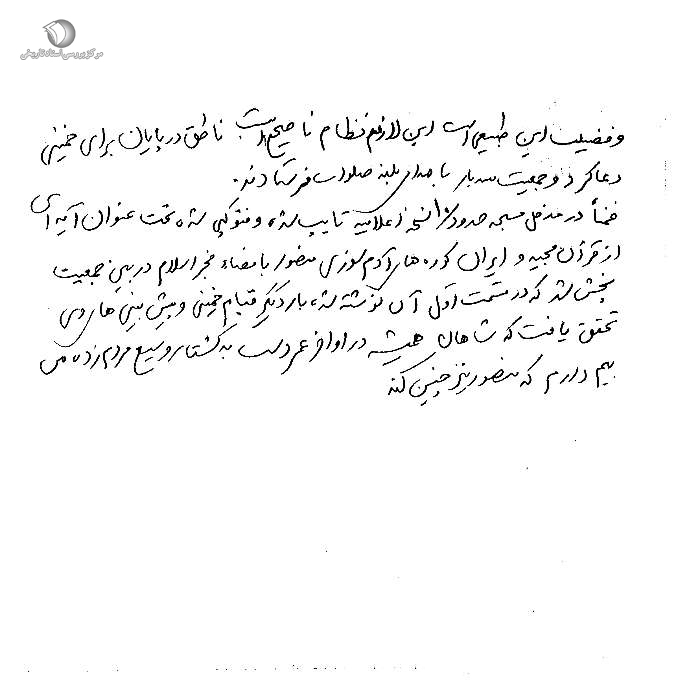 مرکز بررسی اسناد تاریخی
و فضیلت این طبیعی است این لازم نظام ناصحیح است ناطق در پایان برای خمینی
دعا کرد و جمعیت سه بار با صدای بلند صلوات فرستادند.
ضمناً در مدخل مسجد حدود نسخه اعلامیه تایپ شده و فتوکپی شده تحت عنوان آیه ای
از قرآن مجید و ایران کوره های آدم سوزی منصور با مضاء فجر اسلام در بین جمعیت
پخش شد که در قسمت اول آن نوشته شده بار دیگر قیام خمینی و پیش بینی های وی
تحقق یافت که شاهان همیشه در اواخر عمر دست به کشتار وسیع مردم زده می
بیم دارم که منصور نیز چنین کند